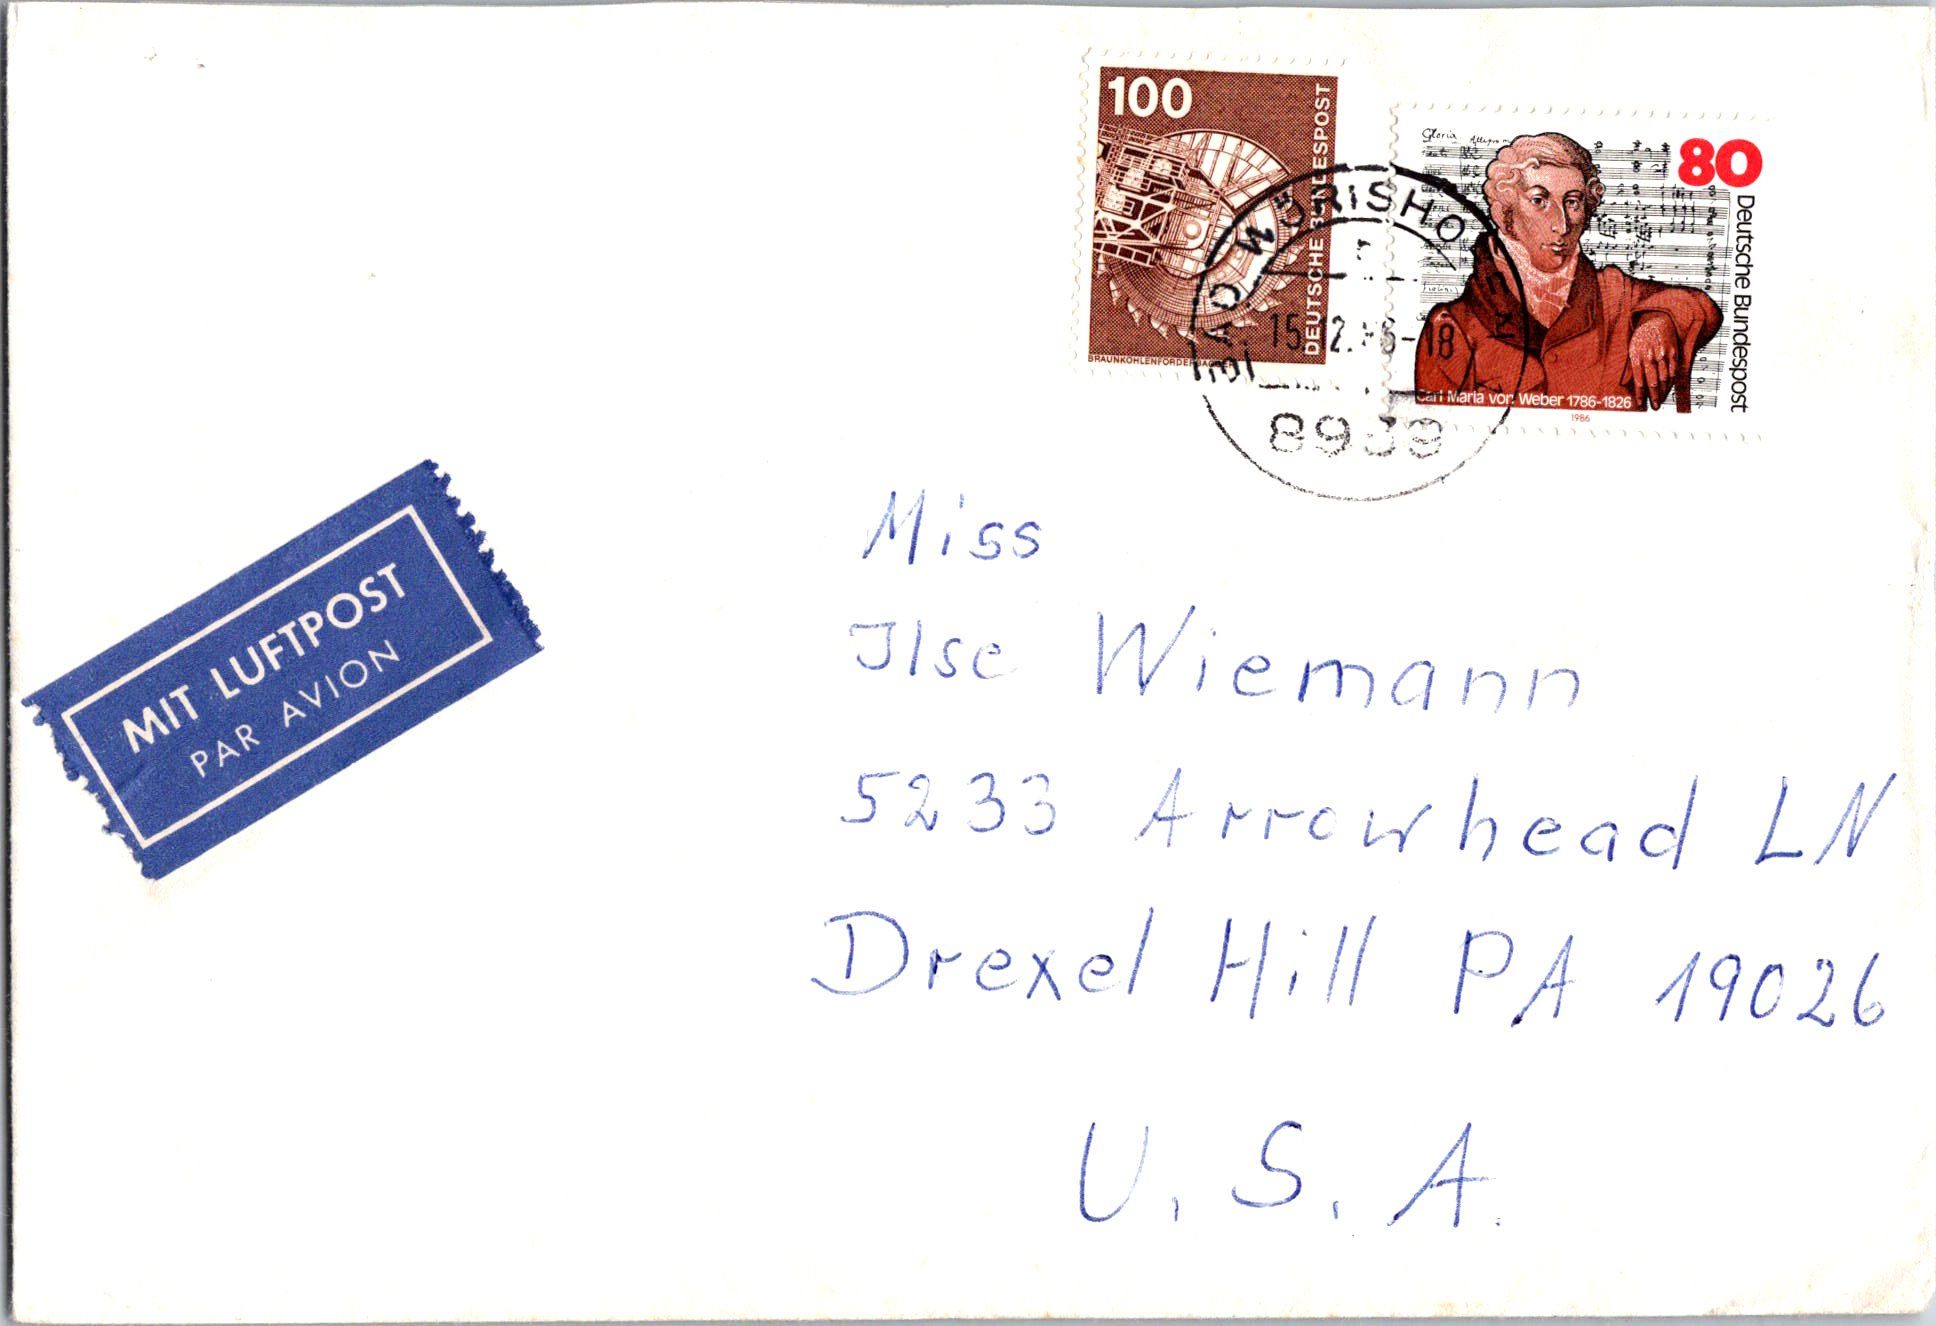 100
DEUTSCHE BUNDESPOST
BRAUNKOHLENFÖRDERBAGGER
Gloria
80
Deutsche Bundespost
Carl Maria von Weber 1786-1826
1986
BAD WÖRISHO
15.12.86-18
8939
MIT LUFTPOST
PAR AVION
Miss
Ilse Wiemann
5233 Arrowhead LN
Drexel Hill PA 19026
U.S.A.